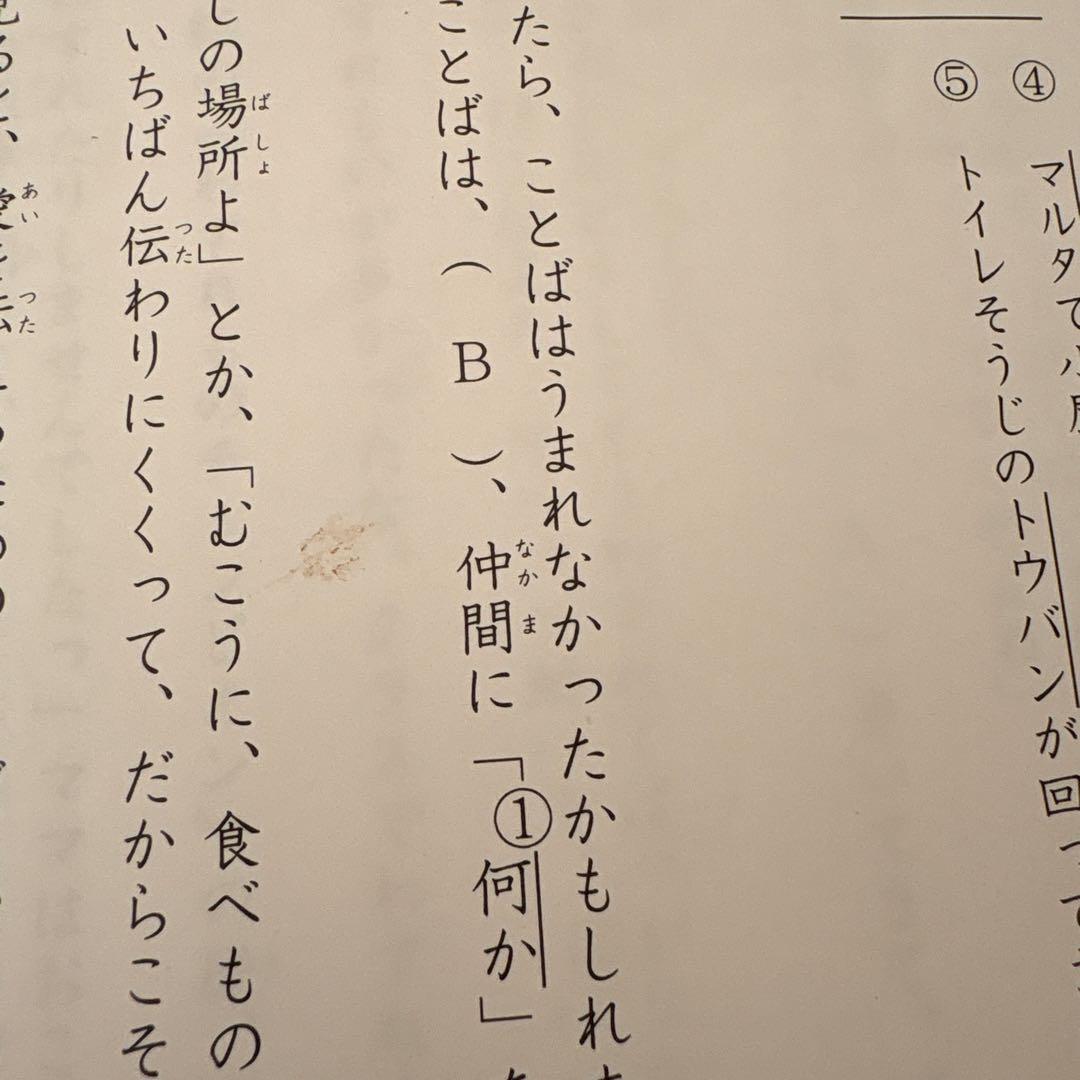 ④ マルタで小
⑤ トイレそうじのトウバンが回って
たら、ことばはうまれなかったかもしれ
ことばは、（ B ）、仲間に「①何か」
しの場所よ」とか、「むこうに、食べもの
いちばん伝わりにくくって、だからこそ